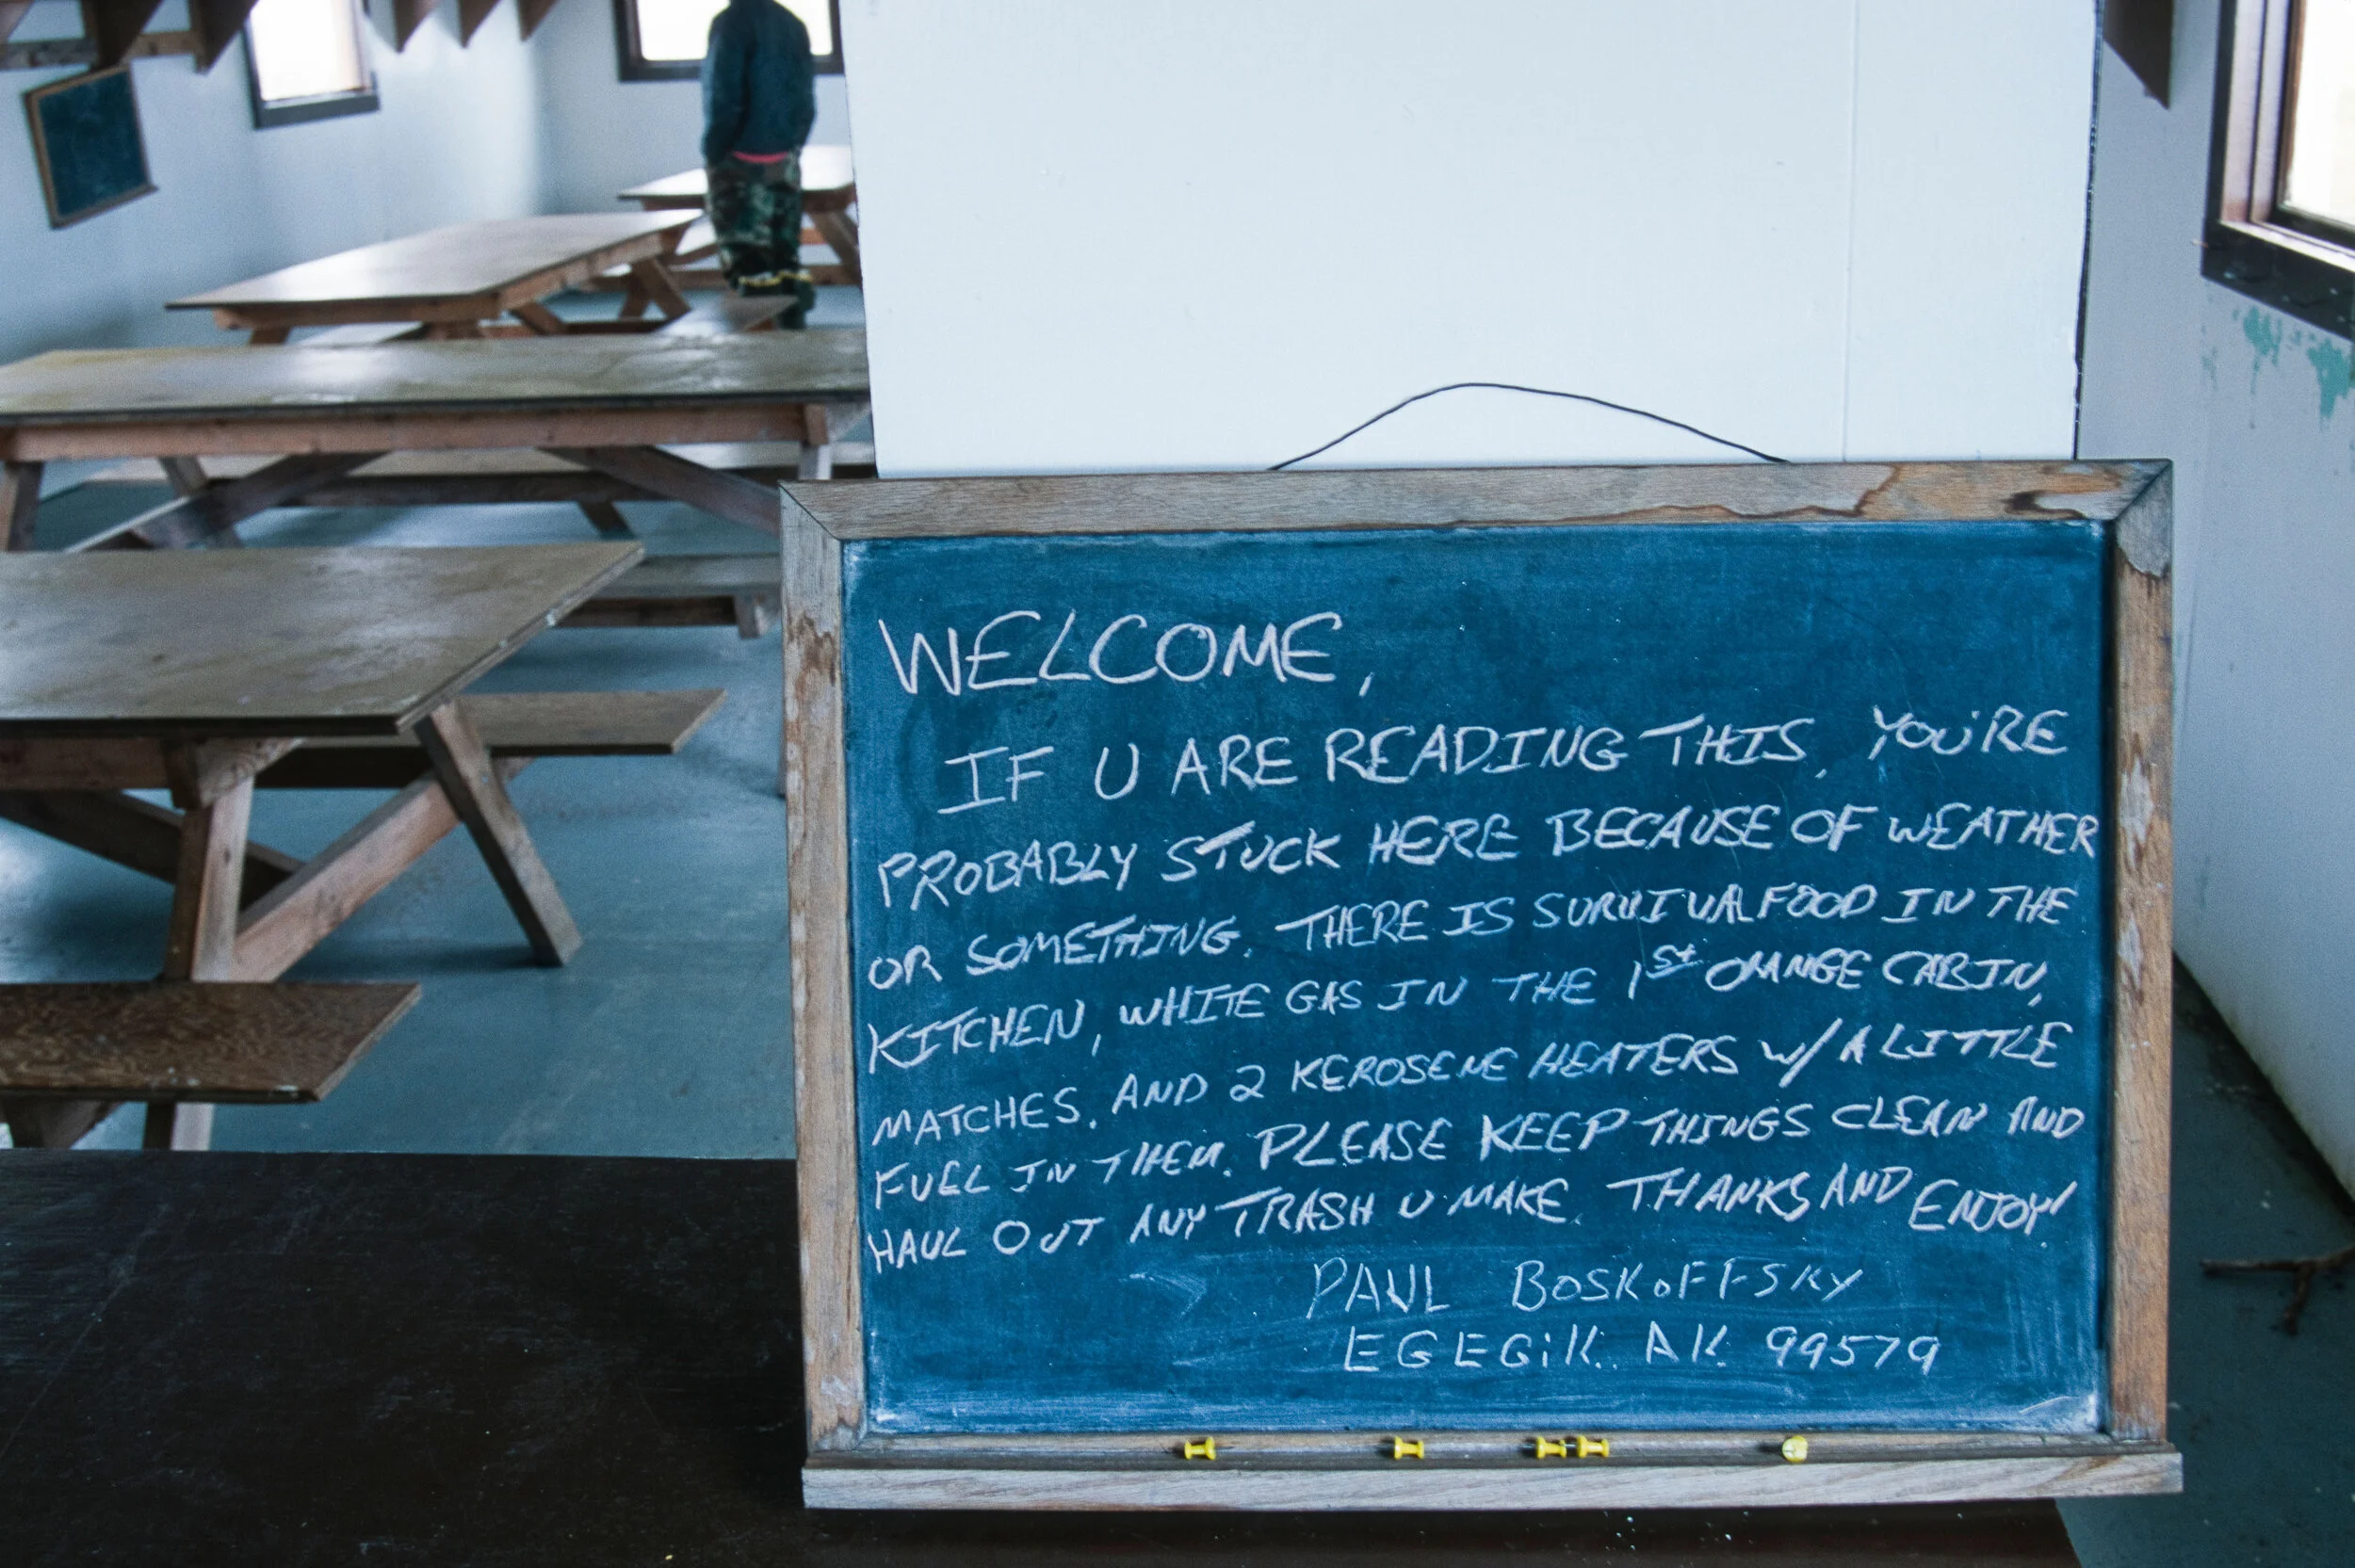 WELCOME,
IF U ARE READING THIS, YOU'RE
PROBABLY STUCK HERE BECAUSE OF WEATHER
OR SOMETHING. THERE IS SURVIVAL FOOD IN THE
KITCHEN, WHITE GAS IN THE 1st ORANGE CABIN,
MATCHES, AND 2 KEROSENE HEATERS W/ A LITTLE
FUEL IN THEM. PLEASE KEEP THINGS CLEAN AND
HAUL OUT ANY TRASH U MAKE. THANKS AND ENJOY!
PAUL BOSKOFFSKY
EGEGiK. AK 99579